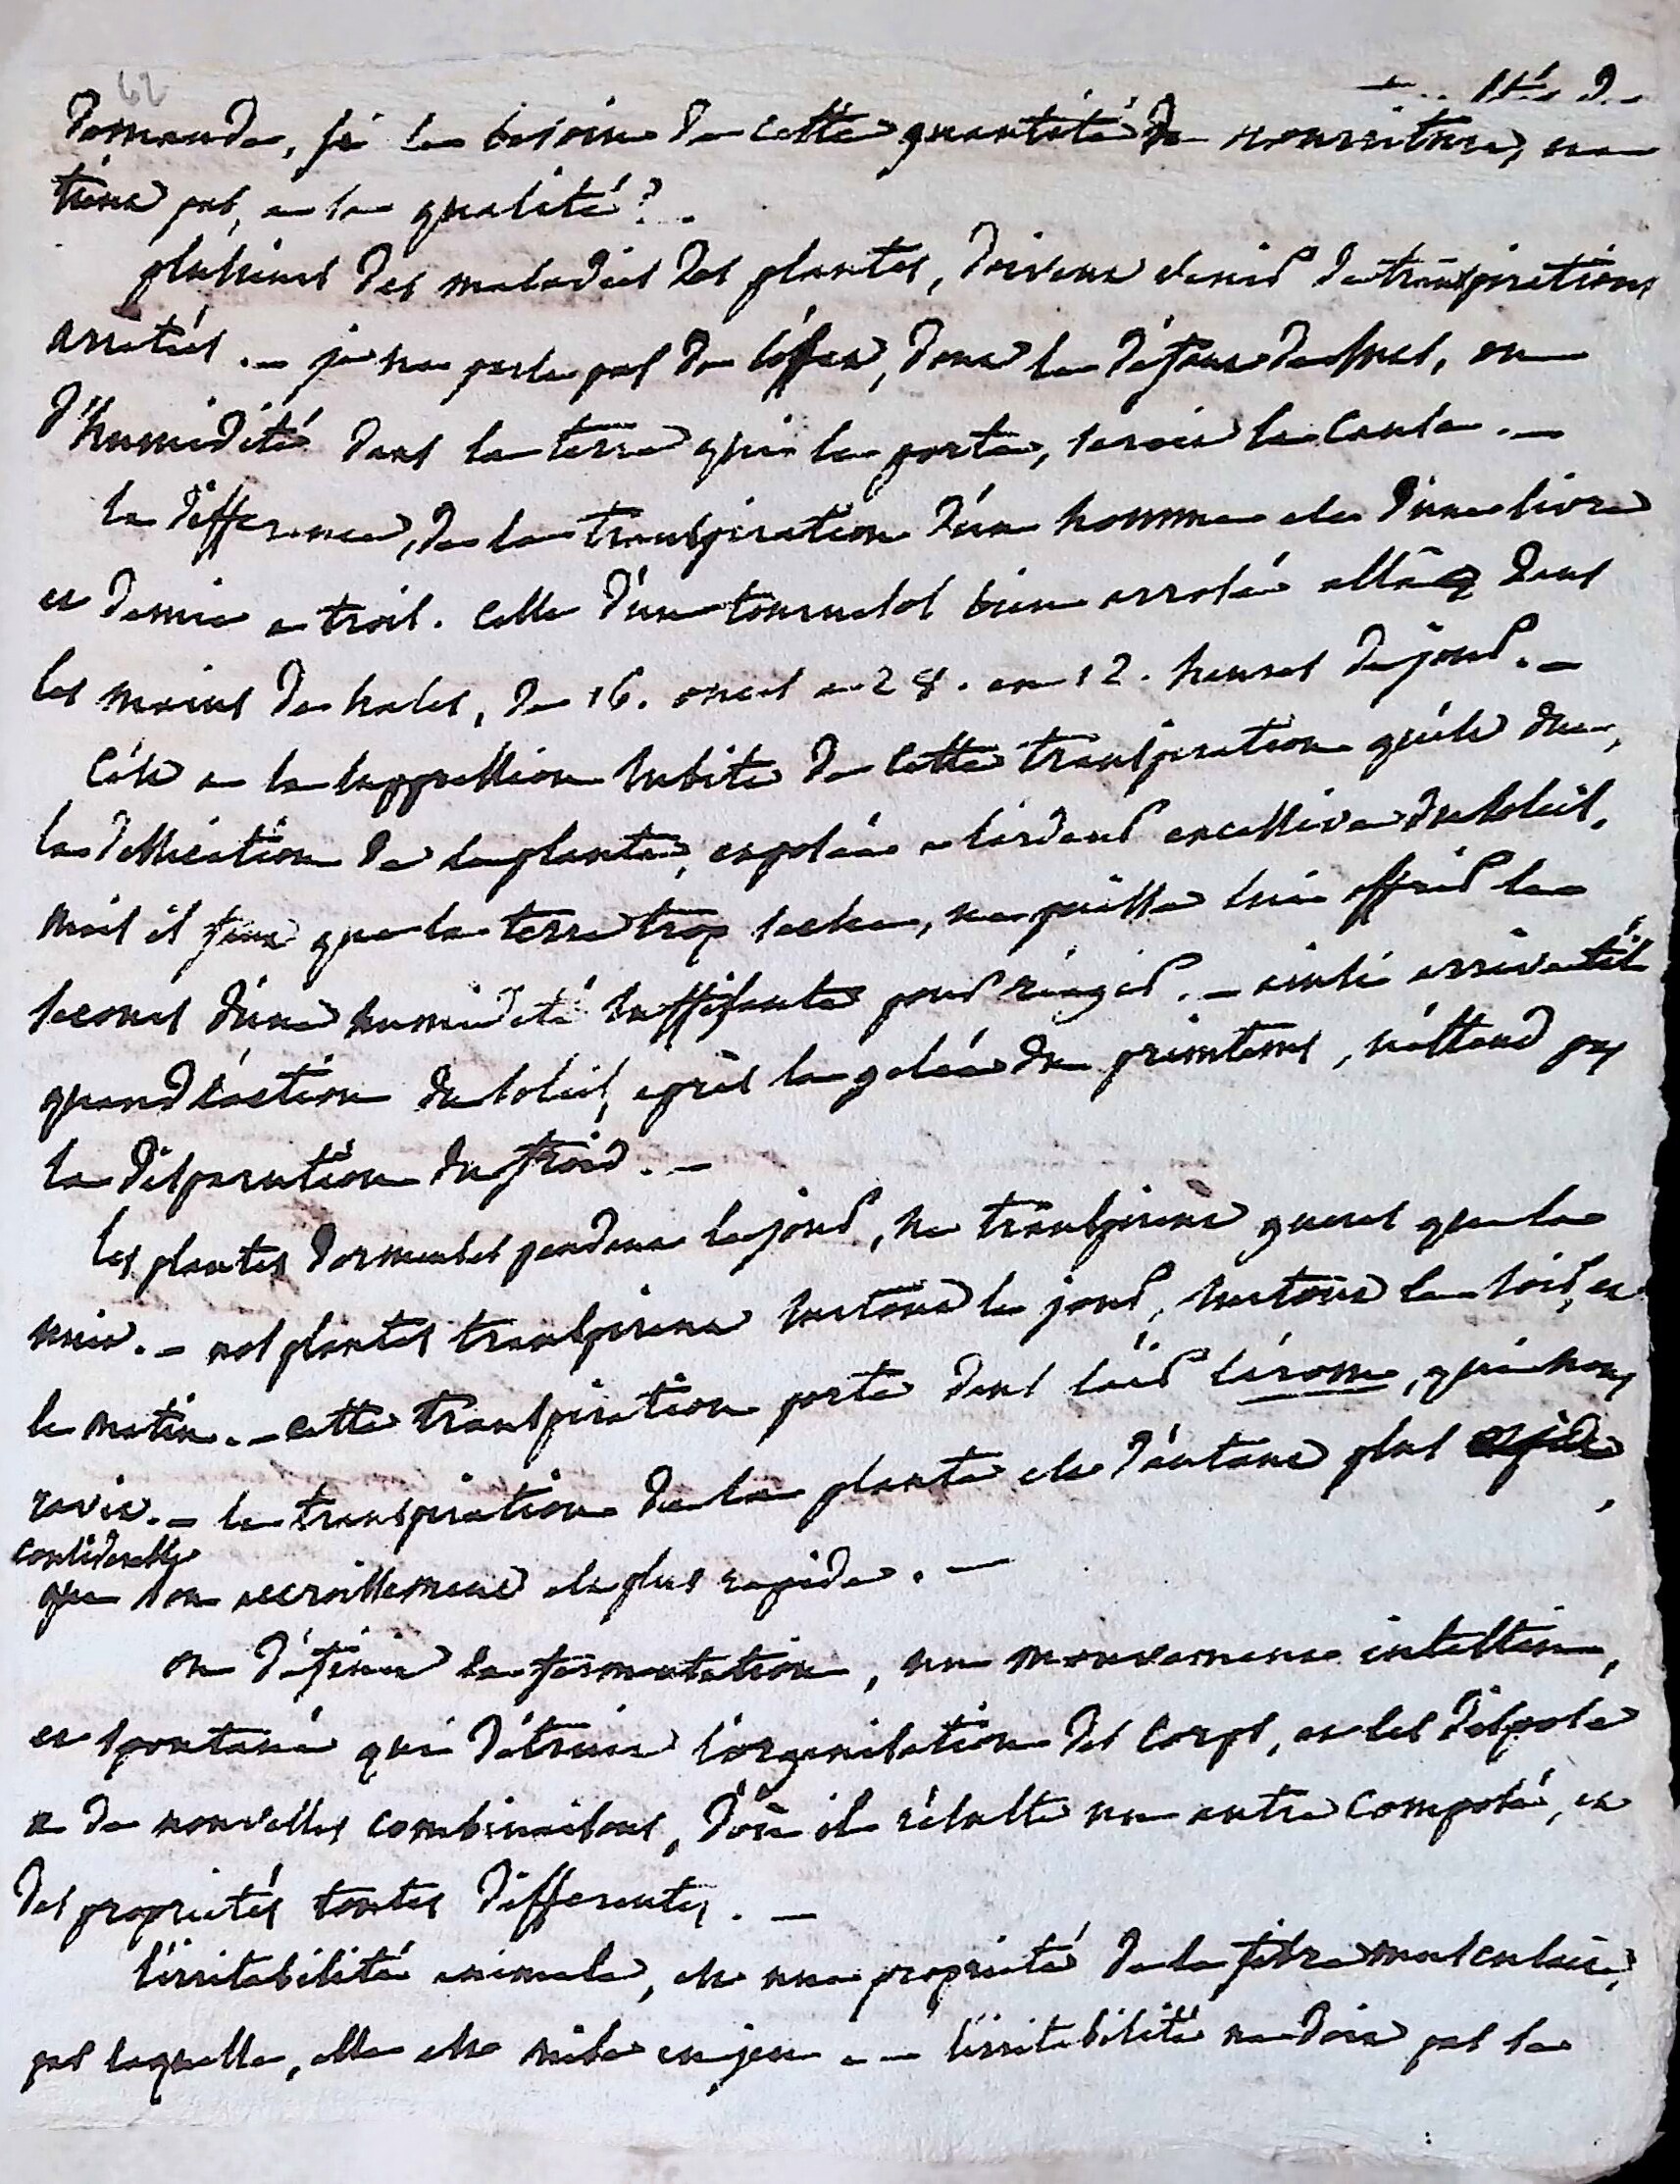 62
demande, si le besoin de cette quantité de nourriture, ne
tient pas, a la qualité ?.
plusieurs des maladies des plantes, doivent venir de transpirations
arretées. — je ne parle pas de l'effet, dont le défaut de sucs, ou
d'humidité dans la terre qui les porte, seroit la cause. —
la difference, de la transpiration d'un homme est d'une livre
et demie a trois. celle d'un tournesol bien arrosé alloit dans
les mains de hales, de 16. onces a 28. en 12. heures de jour. —
C'est a la suppression subite de cette transpiration qu'est due,
la dessication de la plante, exposée a l'ardeur excessive du soleil.
mais il faut que la terre trop seche, ne puisse lui offrir le
secours d'une humidité suffisante pour réagir. — ainsi arrive t'il
quand l'action du soleil, après la gelée du printems, n'attend pas
la disparution du froid. —
les plantes dormeuses pendant le jour, ne transpirent gueres que la
nuit. — nos plantes transpirent surtout le jour, surtout le soir, et
le matin. — cette transpiration porte dans l'air l'arome, qui nous
ravit. — la transpiration de la plante est d'autant plus
considerable
que son accroissement est plus rapide. —
on définit la fermentation, un mouvement intestin,
et spontané qui détruit l'organisation des corps, et les dispose
a de nouvelles combinaisons, d'où il résulte un autre composé, et
des propriétés toutes differentes. —
l'irritabilité animale, est une propriété de la fibre musculaire,
par laquelle, elle est mise en jeu — l'irritabilité ne doit pas se